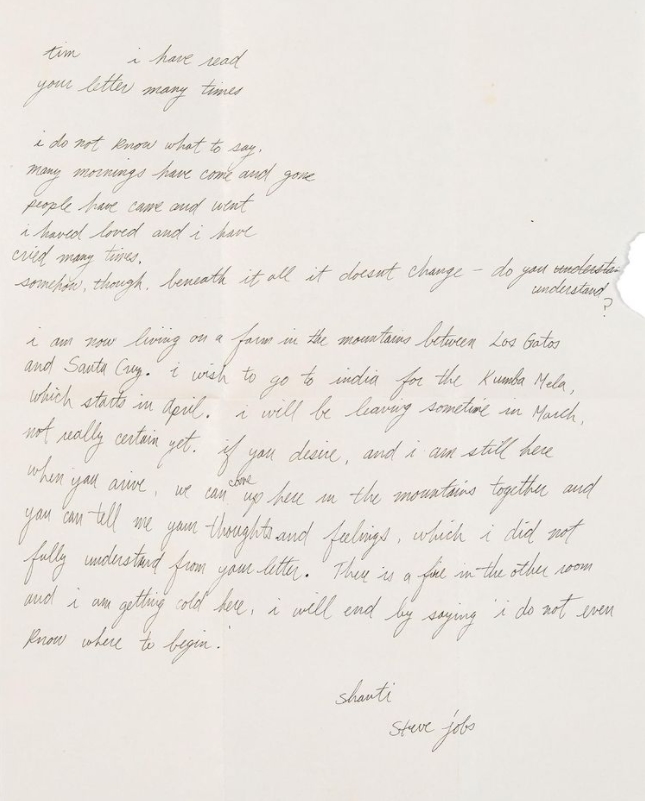 tim i have read
your letter many times
i do not know what to say.
many mornings have come and gone
people have came and went
i haved loved and i have
cried many times.
somehow, though, beneath it all it doesnt change - do you understa
understand
?
i am now living on a farm in the mountains between Los Gatos
and Santa Cruz. i wish to go to india for the Kumba Mela,
which starts in April. i will be leaving sometime in March,
not really certain yet. if you desire, and i am still here
when you arive, we can come up here in the mountains together and
you can tell me your thoughts and feelings, which i did not
fully understand from your letter. There is a fire in the other room
and i am getting cold here, i will end by saying 'i do not even
know where to begin.'
shanti
Steve jobs